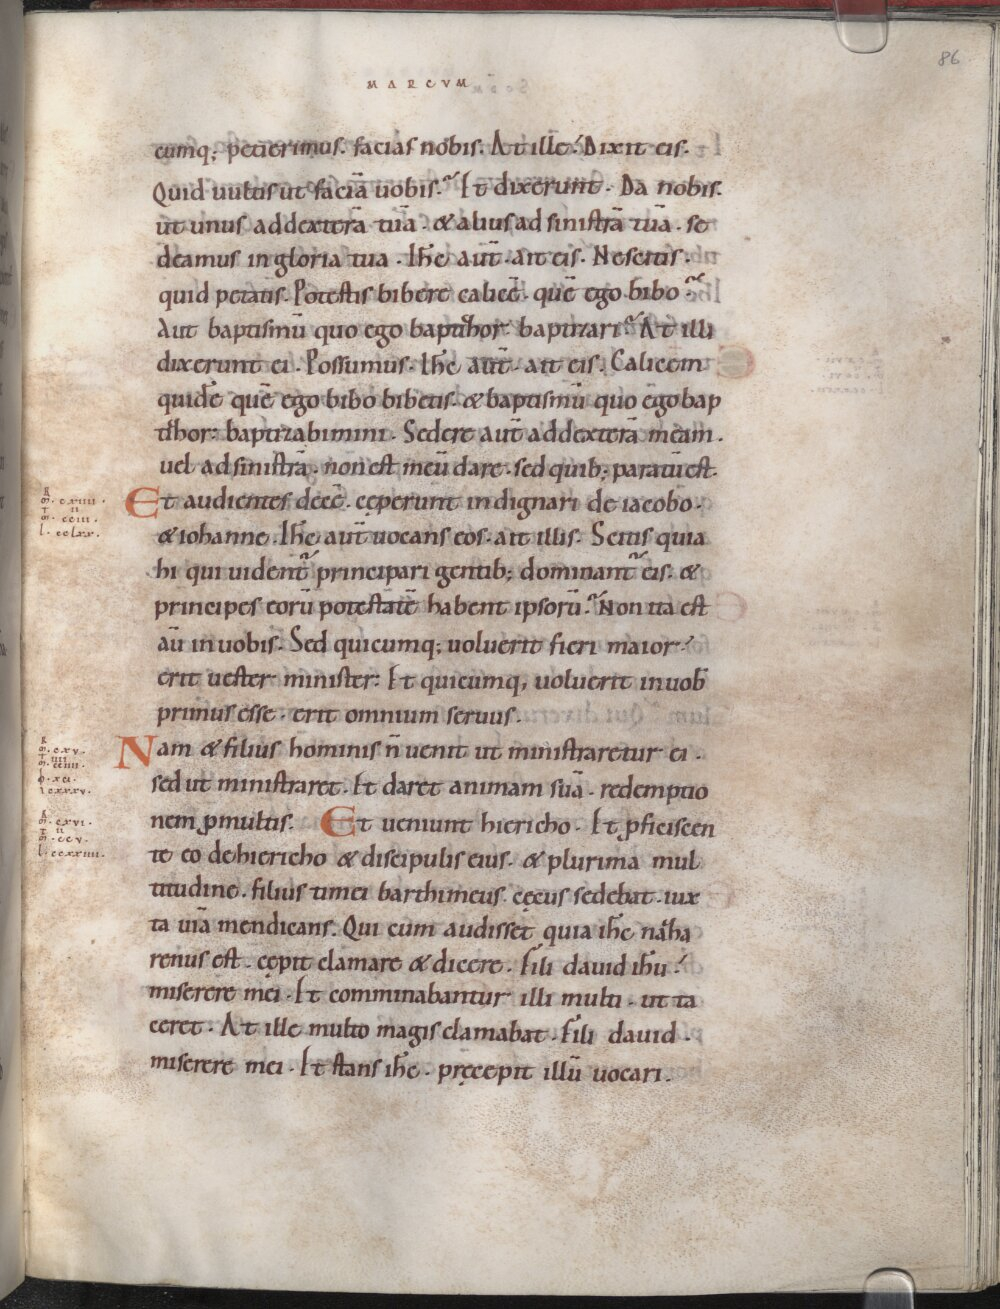 86
MARCVM
cumq; petierimus. facias nobis. At ille. Dixit eis.
Quid uultis ut faciā uobis. Et dixerunt. Da nobis.
ut unus addexterā tuā. & alius ad sinistrā tuā. se
deamus in gloria tua. Ihc̄ aut̄. ait eis. Nescitis.
quid petatis. Potestis bibere calicē. quē ego bibo.
Aut baptismū quo ego baptizhor baptizari. At illi
dixerunt ei. Possumus. Ihc̄ aut̄. ait eis. Calicem
quidē quē ego bibo bibetis. & baptismū quo ego bap
tizhor: baptizabimini. Sedere aut̄ addexterā meam.
uel ad sinistrā. non est meū dare. sed quib; paratū est.
Et audientes decē. cęperunt indignari de iacobo.
& iohanne. Ihc̄ aut̄ uocans eos. ait illis. Scitis quia
hi qui uident̄ principari gentib; dominant̄ eis. &
principes eorū potestatē habent ipsorū. Non ita est
aū in uobis. Sed quicumq; uoluerit fieri maior.
erit uester minister. Et quicumq; uoluerit in uob̄
primus esse. erit omnium seruus.
Nam & filius hominis n̄ uenit ut ministraretur ei.
sed ut ministraret. Et daret animam suā. redemptio
nem ꝓ multis. Et ueniunt hiericho. Et ꝓficiscen
te eo dehiericho & discipulis eius. & plurima mul
titudine. filius timei barthimeus. cęcus sedebat. iux
ta uiā mendicans. Qui cum audisset quia ihc̄ naz̄ha
renus est. cępit clamare & dicere. Fili dauid ihū.
miserere mei. Et comminabantur illi multi. ut ta
ceret. At ille multo magis clamabat. Fili dauid.
miserere mei. Et stans ihc̄. pręcepit illū uocari.